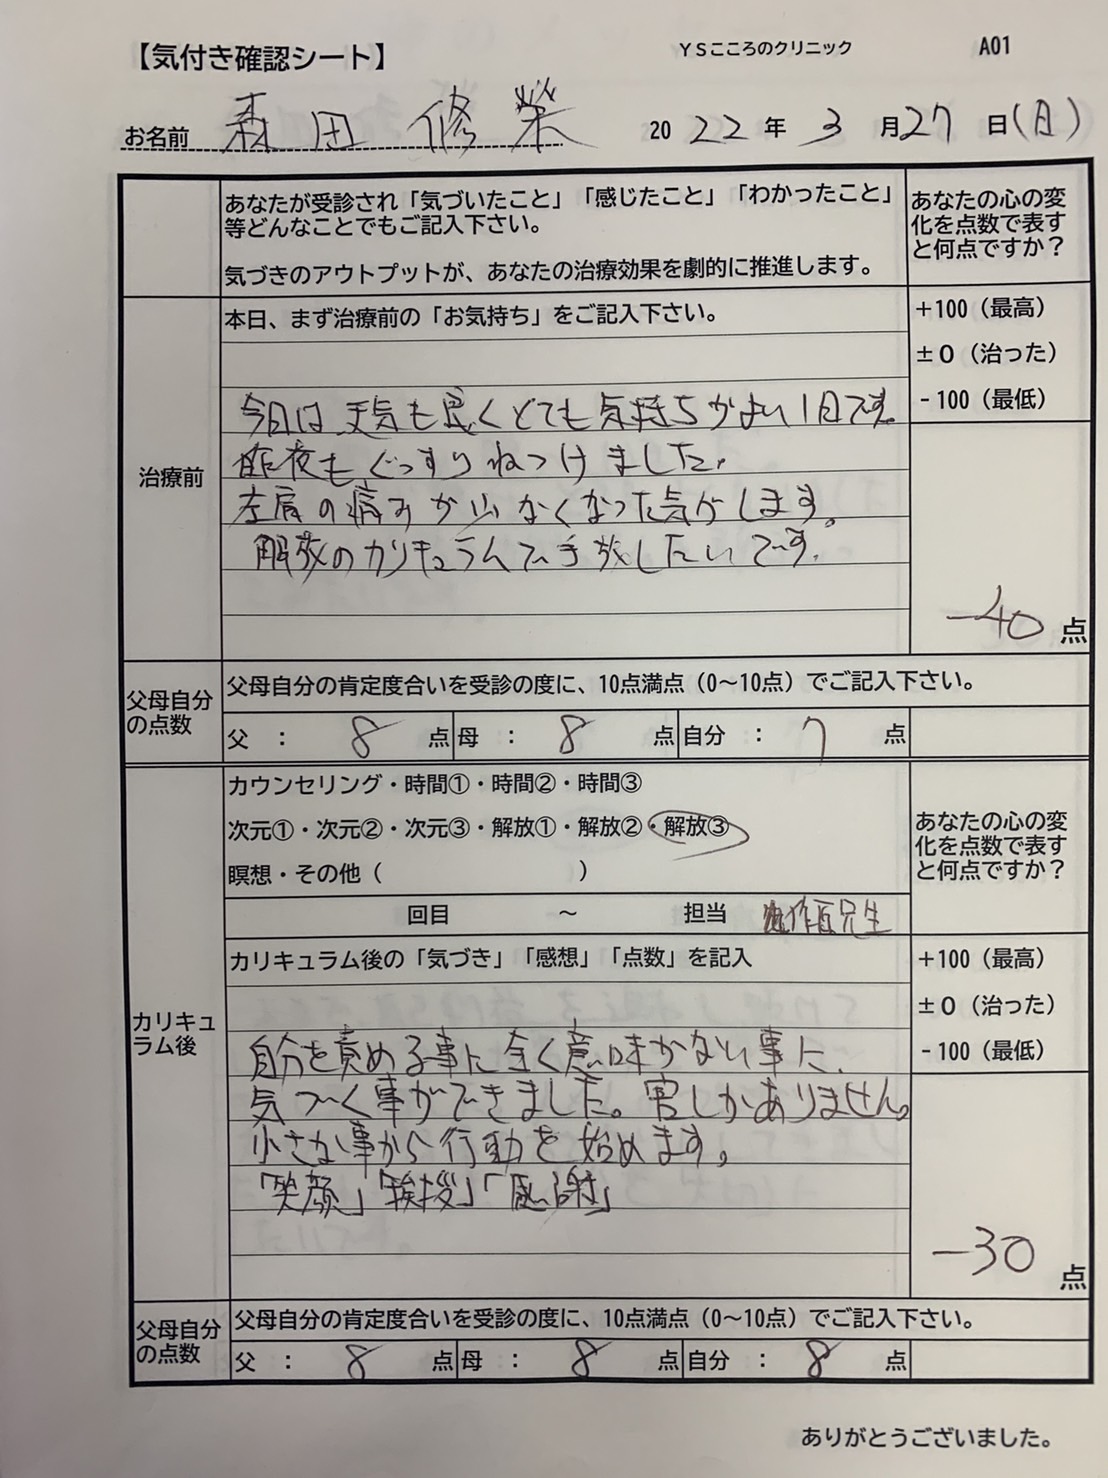 【気付き確認シート】 YSこころのクリニック A01
お名前 森田 修栄 2022年3月27日(日)
あなたが受診され「気づいたこと」「感じたこと」「わかったこと」
等どんなことでもご記入下さい。
気づきのアウトプットが、あなたの治療効果を劇的に推進します。
あなたの心の変
化を点数で表す
と何点ですか？
治療前
本日、まず治療前の「お気持ち」をご記入下さい。
今日は天気も良くとても気持ちがよい1日です。
昨夜もぐっすりねつけました。
左肩の痛みが少なくなった気がします。
解放のカリキュラムで手放したいです。
+100（最高）
±0（治った）
-100（最低）
-40点
父母自分
の点数
父母自分の肯定度合いを受診の度に、10点満点（0〜10点）でご記入下さい。
父 ： 8 点 母 ： 8 点 自分 ： 7 点
カリキュ
ラム後
カウンセリング・時間①・時間②・時間③
次元①・次元②・次元③・解放①・解放②・解放③
瞑想・その他（ ）
回目 〜 担当
あなたの心の変
化を点数で表す
と何点ですか？
カリキュラム後の「気づき」「感想」「点数」を記入
自分を責める事に全く意味がない事に、
気づく事ができました。害しかありません。
小さな事から行動を始めます。
「笑顔」「挨拶」「感謝」
+100（最高）
±0（治った）
-100（最低）
-30点
父母自分
の点数
父母自分の肯定度合いを受診の度に、10点満点（0〜10点）でご記入下さい。
父 ： 8 点 母 ： 8 点 自分 ： 8 点
ありがとうございました。